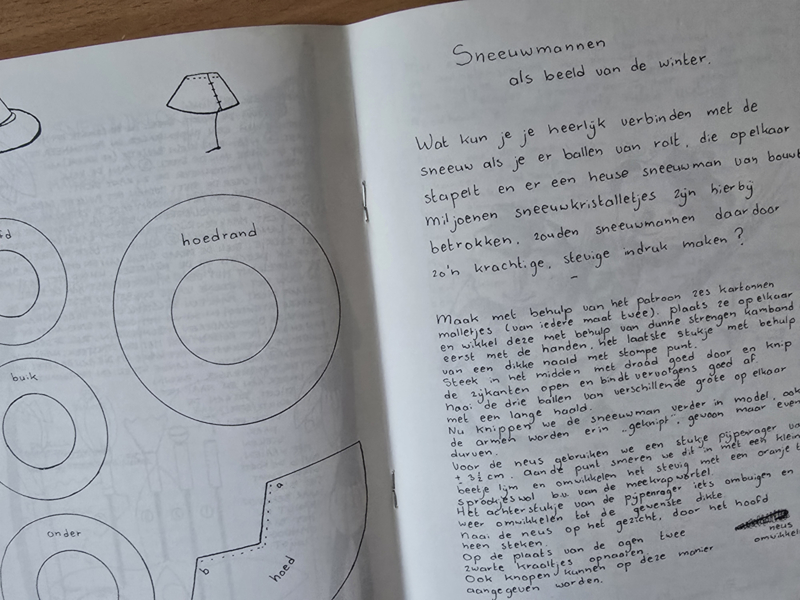 hoedrand
buik
onder
a
b
hoed
Sneeuwmannen
als beeld van de winter.
Wat kun je je heerlijk verbinden met de
sneeuw als je er ballen van rolt, die op elkaar
stapelt en er een heuse sneeuwman van bouwt
miljoenen sneeuwkristalletjes zijn hierbij
betrokken. zouden sneeuwmannen daardoor
zo'n krachtige, stevige indruk maken?
Maak met behulp van het patroon zes kartonnen
malletjes (van iedere maat twee). plaats ze op elkaar
en wikkel deze met behulp van dunne strengen kambond
eerst met de handen, het laatste stukje met behulp
van een dikke naald met stompe punt.
Steek in het midden met draad goed door en knip
de zijkanten open en bindt vervolgens goed af.
Naai de drie ballen van verschillende grote op elkaar
met een lange naald.
Nu knippen we de sneeuwman verder in model, ook
de armen worden erin "geknipt", gewoon maar even
durven.
Voor de neus gebruiken we een stukje pijpenrager van
± 3½ cm. Aan de punt smeren we dit in met een klein
beetje lijm en omwikkelen het stevig met een oranje
sprookjeswol b.v. van de meekrapwortel.
Het achterstukje van de pijpenrager iets ombuigen en
weer omwikkelen tot de gewenste dikte.
Naai de neus op het gezicht, door het hoofd
heen steken.
Op de plaats van de ogen twee
zwarte kraaltjes opnaaien.
Ook knopen kunnen op deze manier
aangegeven worden.
neus